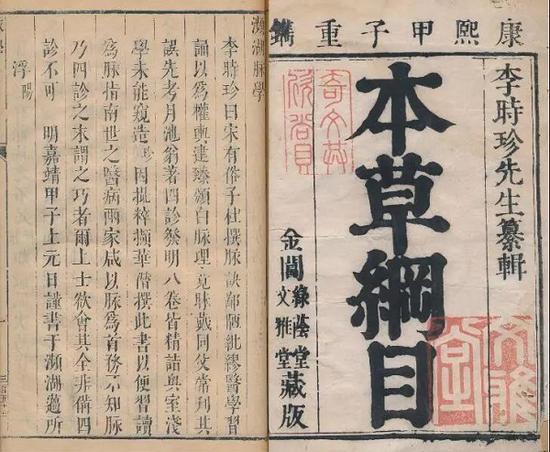 康熙甲子重鐫
李時珍先生纂輯
本草綱目
金閶
綠蔭堂
文雅堂
藏版
奇文共欣賞
文雅堂
瀕湖脉學
李時珍曰宋有俗子杜撰脉訣鄙陋紕繆醫學習
誦以爲權輿逮臻頒白脉理竟昧戴同父常刊其
誤先考月池翁著四診發明八卷皆精詣奥室淺
學未能窺造珍因批粹擷華僭撰此書以便習讀
爲脉指南世之醫病兩家咸以脉爲首務不知脉
乃四診之末謂之巧者爾上士欲會其全非備四
診不可 明嘉靖甲子上元日謹書于瀕湖薖所
浮陽